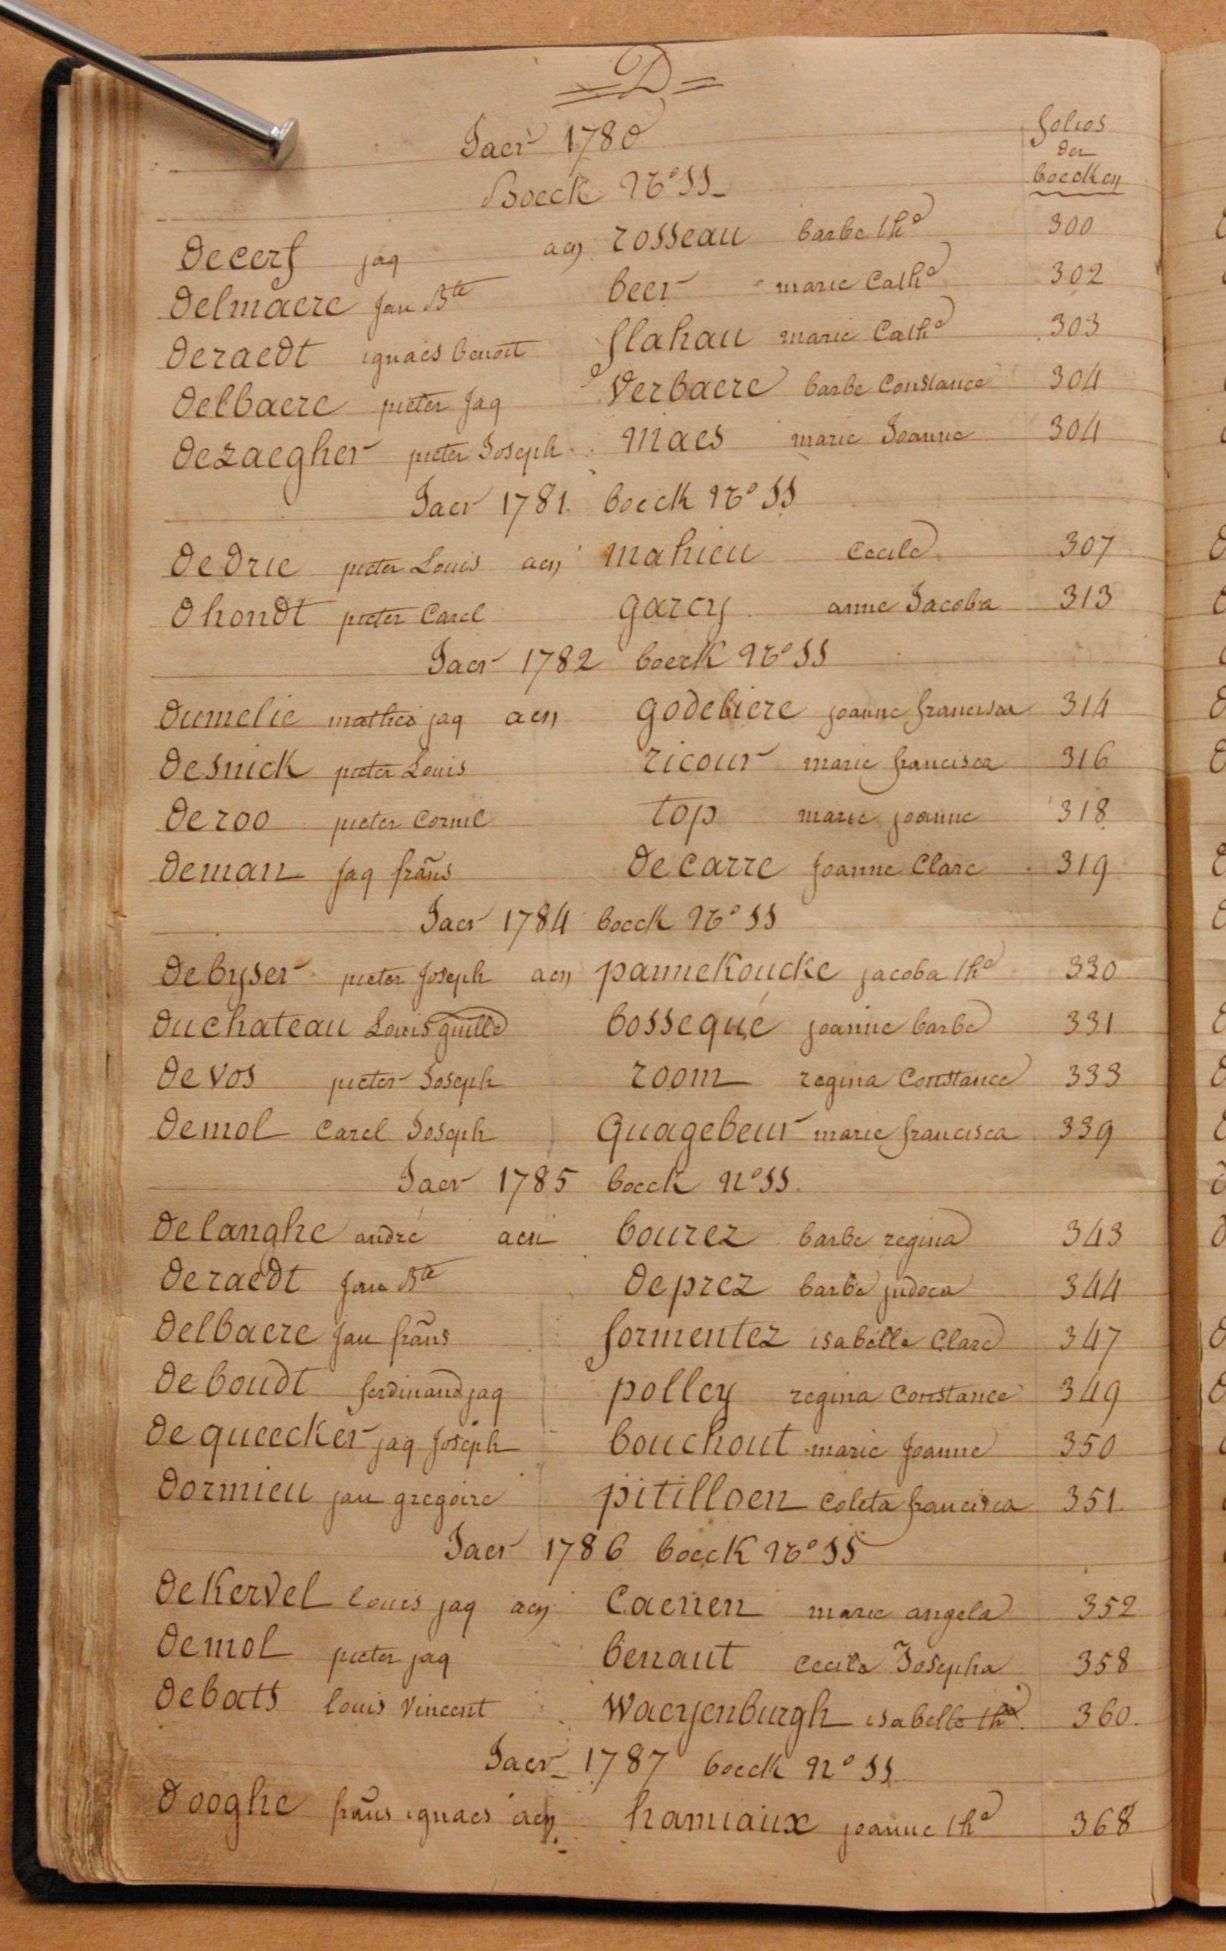 D
Jaer 1780
folios
der
boecken
Boeck No SS
decerf jaq aen rosseau barbe the 300
delmaere jan Bte beer marie Cathe 302
deraedt ignaes benoit flahau marie Cathe 303
delbaere pieter Jaq verbaere barbe Constance 304
dezaegher pieter Joseph maes marie Joanne 304
Jaer 1781 boeck No SS
dedrie pieter Louis aen mahieu Cecile 307
dhondt pieter Carel garcy anne Jacoba 313
Jaer 1782 boeck No SS
dumelie mathei jaq aen godebiere joanne francisca 314
desnick pieter Louis ricour marie francisca 316
deroo pieter Cornil top marie joanne 318
deman Jaq frans decarre Joanne Clare 319
Jaer 1784 boeck No SS
debyser pieter Joseph aen pannekoucke jacoba the 330
duchateau Louis guille bossequé joanne barbe 331
devos pieter Joseph room regina Constance 333
demol Carel Joseph quagebeur marie francisca 339
Jaer 1785 boeck No SS
delanghe andré aen bourez barbe regina 343
deraedt Jan Bte deprez barbe judoca 344
delbaere Jan frans formentez isabelle Clare 347
deboudt ferdinand jaq polley regina Constance 349
dequeecker jaq Joseph bouchout marie Joanne 350
dormieu jan gregoire pitilloen Coleta francisca 351
Jaer 1786 boeck No SS
dekervel louis jaq aen Caenen marie angela 352
demol pieter jaq benaut Cecile Josepha 358
debats louis vincent waeyenburgh isabelle the 360
Jaer 1787 boeck No SS
dooghe frans ignaes aen hamiaux joanne the 368